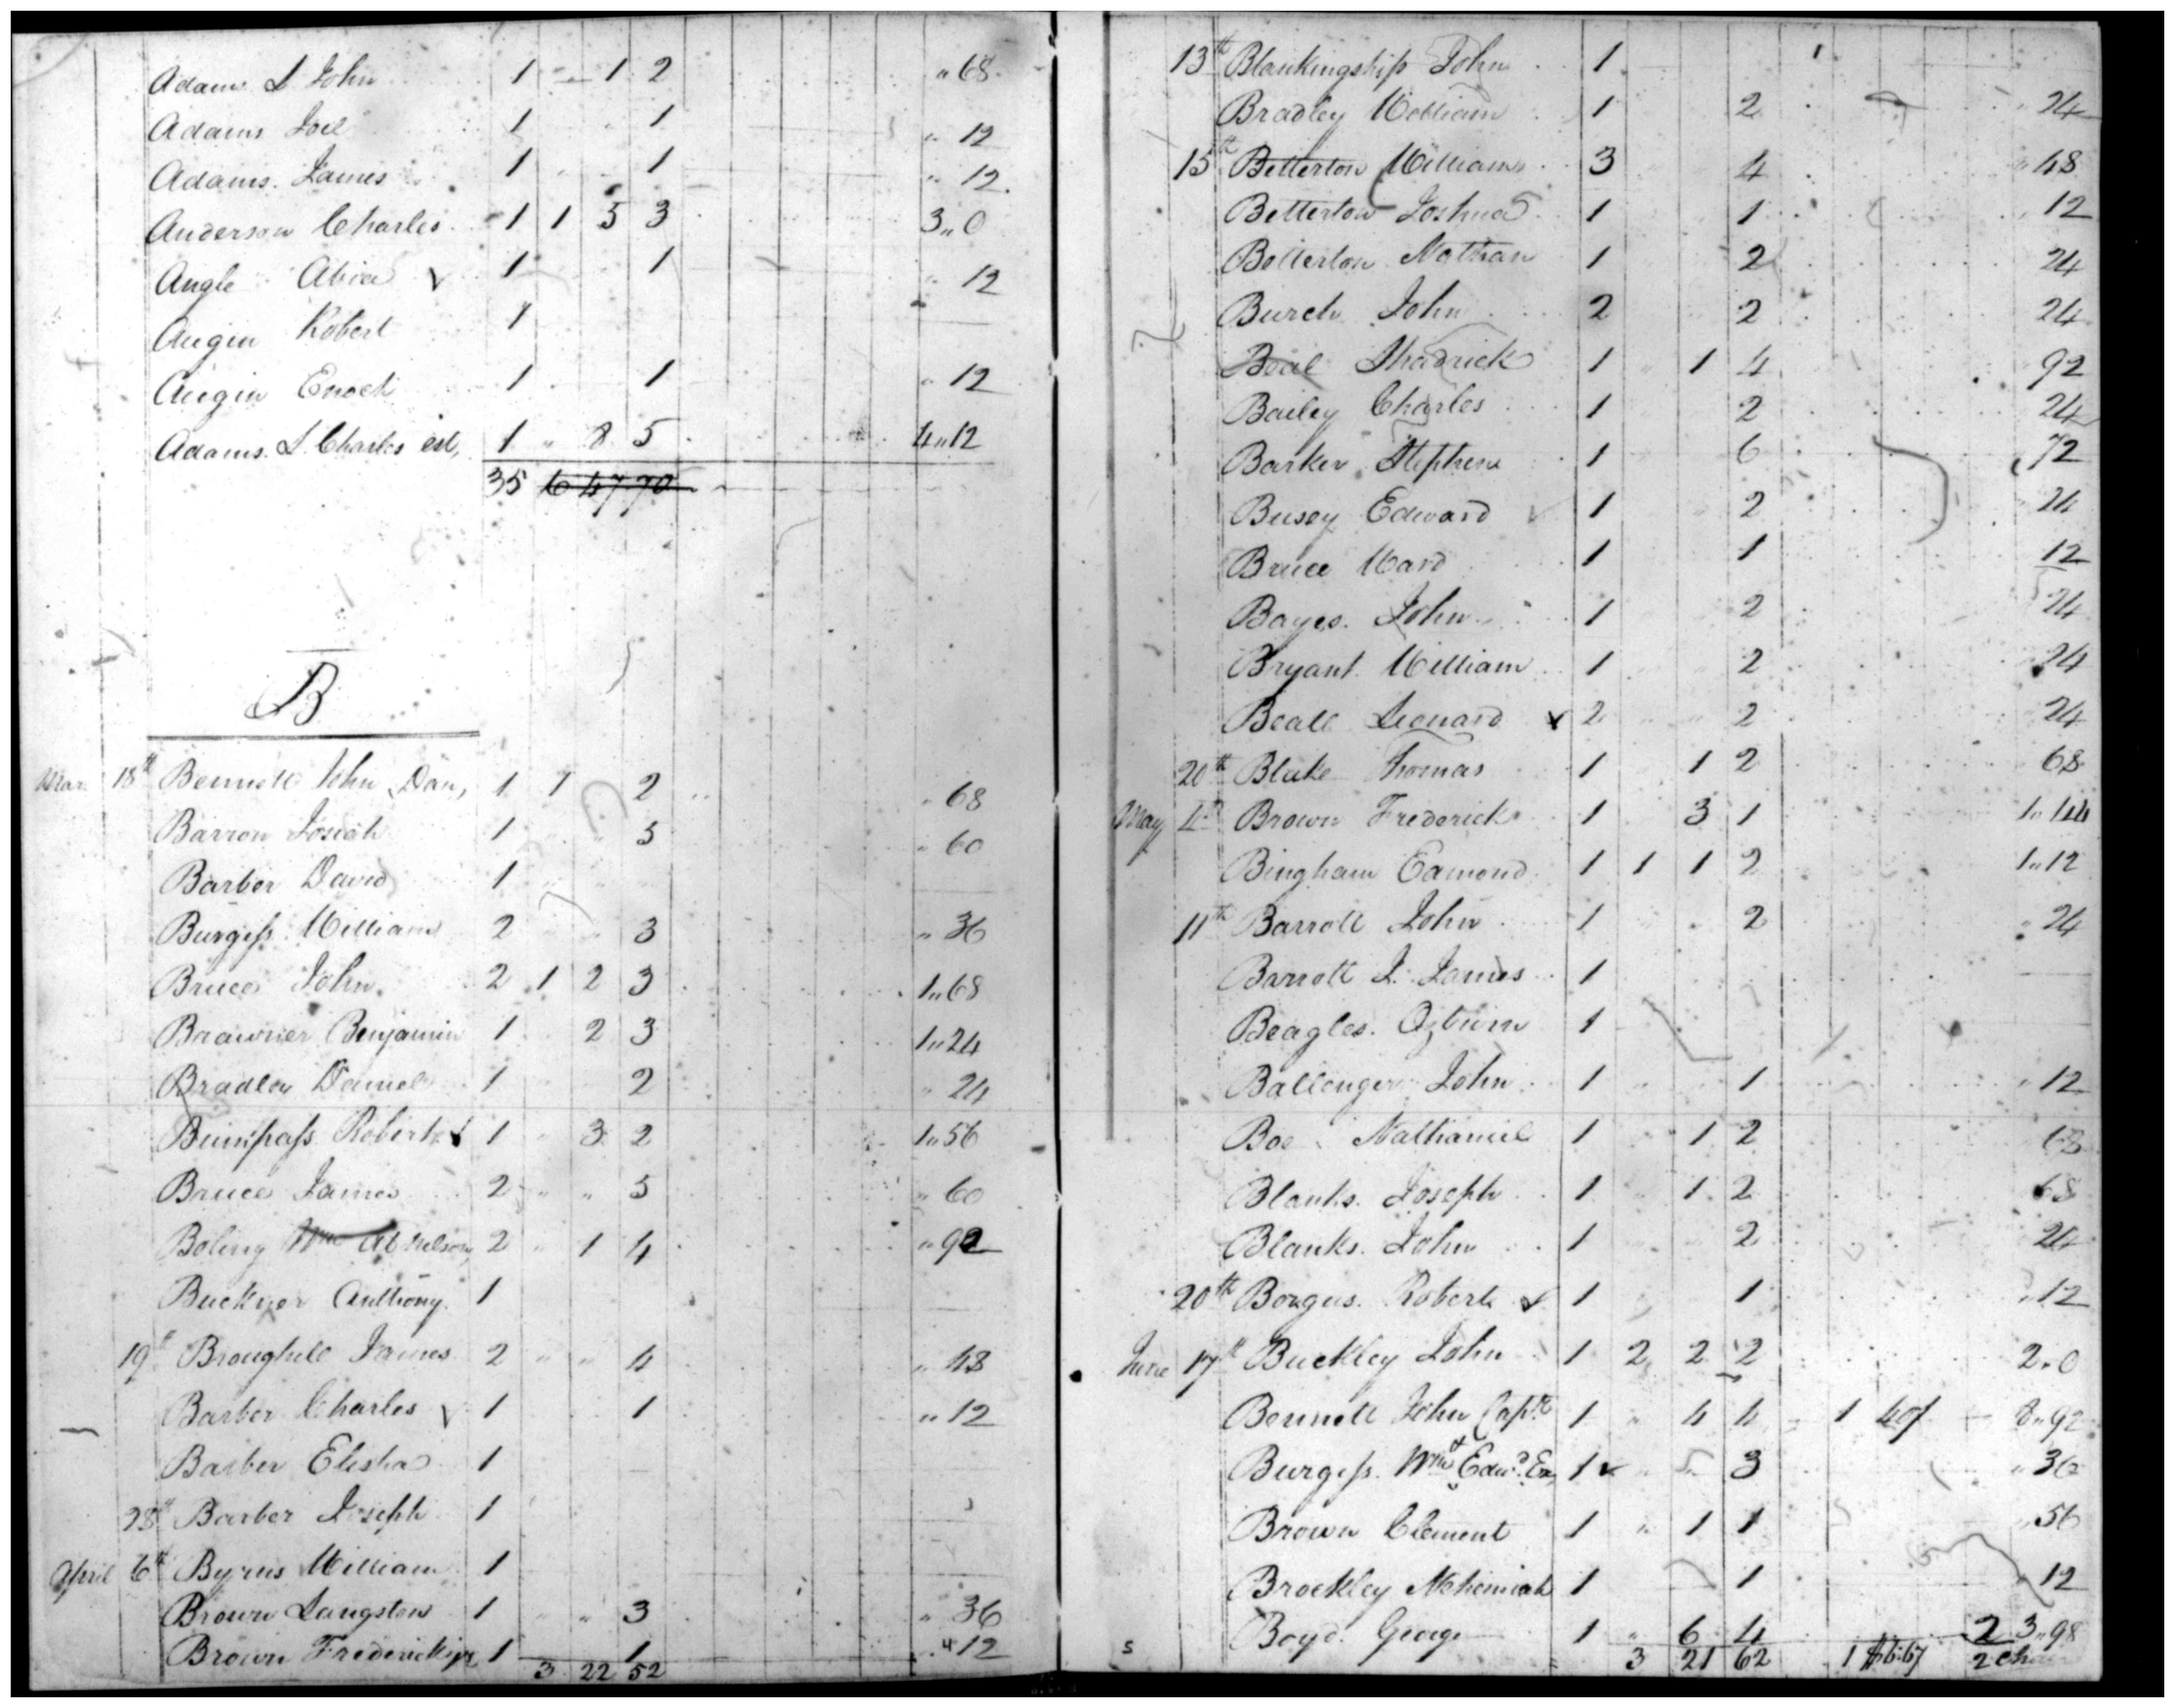 Adams S John 1 1 2 " 68
Adams Joel 1 1 " 12
Adams. James 1 1 " 12.
Anderson Charles 1 1 5 3 3 " 0
Angle Abica 1 1 " 12
Angin Robert 1
Angin Enoch 1 1 " 12
Adams. S. Charles est, 1 " 8 5 4 " 12
35 6 47 70
B
Mar 18th Bennett John Dan, 1 1 2 " 68
Barron Josiah 1 " 5 " 60
Barber David 1
Burgess William 2 " 3 " 36
Bruce John 2 1 2 3 1 " 68
Brawner Benjamin 1 2 3 1 " 24
Bradley Daniel 1 2 " 24
Bumpass Robert 1 " 3 2 1 " 56
Bruce James 2 " " 5 " 60
Boling Wm 2 " 1 4 " 92
Buckner Anthony 1
19th Broughill James 2 " " 4 " 48
Barber Charles 1 1 " 12
Barber Elisha 1
28th Barber Joseph 1
April 6th Byrns William 1
Brown Langston 1 " " 3 " 36
Brown Frederick jr 1 1 " 12
3 22 52
13th Blankingship John 1
Bradley William 1 2 24
15th Betterton William 3 4 " 48
Betterton Joshua 1 1 12
Betterton Nathan 1 2 24
Burch John 2 2 24
Beal Shadrick 1 " 1 4 92
Bailey Charles 1 2 24
Barker Stephen 1 6 72
Busey Edward 1 2 24
Bruce Ward 1 1 12
Bayes. John 1 2 24
Bryant William 1 2 24
Beall Leonard 2 2 24
20th Blake Thomas 1 1 2 68
May 4th Brown Frederick 1 3 1 1 " 44
Bingham Edmond 1 1 1 2 1 " 12
11th Barrott John 1 2 24
Barrott J. James 1
Beagles. Ozburn 1
Ballenger John 1 1 " 12
Boe Nathaniel 1 1 2 68
Blanks. Joseph 1 1 2 68
Blanks. John 1 2 24
20th Borgus. Robert 1 1 " 12
June 17th Buckley John 1 2 2 2 2 " 0
Bennett John Capt. 1 " 4 4 1 40/ 8 " 92
Burgess. Wm & Edwd. Ex, 1 " 3 " 36
Brown Clement 1 " 1 1 " 56
Brockley Nehemiah 1 1 12
5 Boyd George 1 " 6 4 2 3 " 98
3 21 62 1 $6:67 2